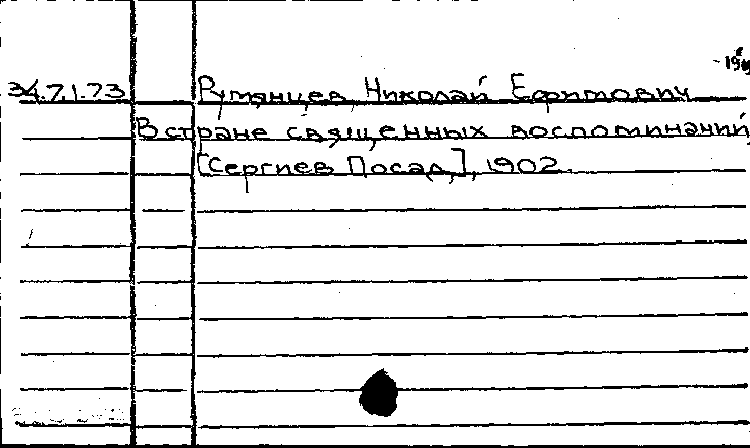 34.7.1.73 Румянцев, Николай Ефимович
В стране священных воспоминаний,
[Сергиев Посад,], 1902.